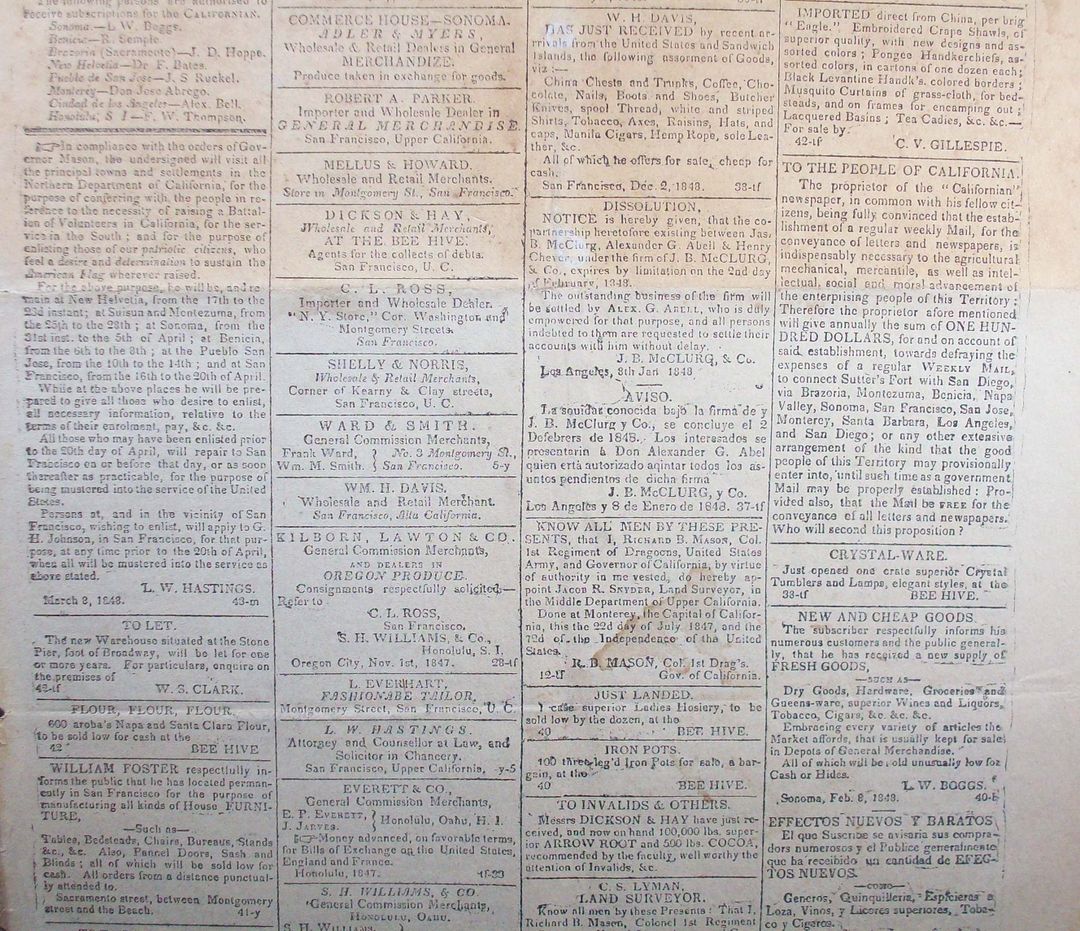 The following persons are authorised to
receive subscriptions for the CALIFORNIAN.
Sonoma.—L W. Boggs.
Benicia—R. Semple.
Brazoria (Sacramento)—J. D. Hoppe.
New Helvetia—Dr F. Bates.
Pueblo de San Jose—J. S Ruckel.
Monterey—Don Jose Abrego.
Ciudad de los Angeles—Alex. Bell.
Honolulu, S I—F. W. Thompson.
In compliance with the orders of Gov-
ernor Mason, the undersigned will visit all
the principal towns and settlements in the
Northern Department of California, for the
purpose of conferring with the people in re-
ference to the necessity of raising a Battal-
ion of Volunteers in California, for the ser-
vice in the South; and for the purpose of
enlisting those of our patriotic citizens, who
feel a desire and determination to sustain the
American Flag wherever raised.
For the above purpose, he will be, and re
main at New Helvetia, from the 17th to the
23d instant; at Suisun and Montezuma, from
the 25th to the 28th; at Sonoma, from the
31st inst. to the 5th of April; at Benicia,
from the 6th to the 8th; at the Pueblo San
Jose, from the 10th to the 14th; and at San
Francisco, from the 16th to the 20th of April.
While at the above places he will be pre-
pared to give all those who desire to enlist,
all necessary information, relative to the
terms of their enrolment, pay, &c. &c.
All those who may have been enlisted prior
to the 20th day of April, will repair to San
Francisco on or before that day, or as soon
thereafter as practicable, for the purpose of
being mustered into the service of the United
States.
Persons at, and in the vicinity of San
Francisco, wishing to enlist, will apply to G.
H. Johnson, in San Francisco, for that pur-
pose, at any time prior to the 20th of April,
when all will be mustered into the service as
above stated.
L. W. HASTINGS.
March 8, 1848. 43-m
TO LET.
The new Warehouse situated at the Stone
Pier, foot of Broadway, will be let for one
or more years. For particulars, enquire on
the premises of
43-tf W. S. CLARK.
FLOUR, FLOUR, FLOUR.
600 aroba's Napa and Santa Clara Flour,
to be sold low for cash at the
42 BEE HIVE
WILLIAM FOSTER respectfully in-
forms the public that he has located perman-
ently in San Francisco for the purpose of
manufacturing all kinds of House FURNI-
TURE,
—Such as—
Tables, Bedsteads, Chairs, Bureaus, Stands
&c., &c. Also, Pannel Doors, Sash and
Blinds; all of which will be sold low for
cash. All orders from a distance punctual-
ly attended to.
Sacramento street, between Montgomery
street and the Beach. 41-y
COMMERCE HOUSE—SONOMA.
ADLER & MYERS,
Wholesale & Retail Dealers in General
MERCHANDIZE.
Produce taken in exchange for goods.
ROBERT A. PARKER.
Importer and Wholesale Dealer in
GENERAL MERCHANDISE.
San Francisco, Upper California.
MELLUS & HOWARD.
Wholesale and Retail Merchants.
Store in Montgomery St., San Francisco.
DICKSON & HAY,
Wholesale and Retail Merchants,
AT THE BEE HIVE.
Agents for the collects of debts.
San Francisco, U. C.
C. L. ROSS,
Importer and Wholesale Dealer.
"N. Y. Store," Cor. Washington and
Montgomery Streets.
San Francisco.
SHELLY & NORRIS,
Wholesale & Retail Merchants,
Corner of Kearny & Clay streets,
San Francisco, U. C.
WARD & SMITH.
General Commission Merchants,
Frank Ward, } No. 3 Montgomery St.,
Wm. M. Smith. } San Francisco. 5-y
WM. H. DAVIS.
Wholesale and Retail Merchant.
San Francisco, Alta California.
KILBORN, LAWTON & CO.
General Commission Merchants,
AND DEALERS IN
OREGON PRODUCE.
Consignments respectfully solicited;—
Refer to
C. L. ROSS,
San Francisco.
S. H. WILLIAMS, & Co.,
Honolulu, S. I.
Oregon City, Nov. 1st, 1847. 28-tf
L. EVERHART,
FASHIONABE TAILOR,
Montgomery Street, San Francisco, U. C.
L. W. HASTINGS.
Attorney and Counsellor at Law, and
Solicitor in Chancery.
San Francisco, Upper California, -y-5
EVERETT & CO.,
General Commission Merchants,
E. P. EVERETT, } Honolulu, Oahu, H. I.
J. JARVES. }
Money advanced, on favorable terms,
for Bills of Exchange on the United States,
England and France.
Honolulu, 1847.
S. H. WILLIAMS, & CO.
General Commission Merchants,
HONOLULU, OAHU.
S. H. WILLIAMS,
W. H. DAVIS,
HAS JUST RECEIVED by recent ar-
rivals from the United States and Sandwich
Islands, the following assorment of Goods,
viz:—
China Chests and Trunks, Coffee, Cho-
colate, Nails, Boots and Shoes, Butcher
Knives, spool Thread, white and striped
Shirts, Tobacco, Axes, Raisins, Hats, and
caps, Manila Cigars, Hemp Rope, sole Lea-
ther, &c.
All of which he offers for sale, cheap for
cash.
San Francisco, Dec. 2, 1848. 33-tf
DISSOLUTION,
NOTICE is hereby given, that the co-
partnership heretofore existing between Jas.
B. McClurg, Alexander G. Abell & Henry
Chever, under the firm of J. B. McCLURG,
& Co., expires by limitation on the 2nd day
of February, 1848.
The outstanding business of the firm will
be settled by ALEX. G. ABELL, who is duly
empowered for that purpose, and all persons
indebted to them are requested to settle their
accounts with him without delay.
J. B. McCLURG, & Co.
Los Angeles, 8th Jan. 1848
AVISO.
La squidae conocida bajo la firma de y
J. B. McClurg y Co., se concluye el 2
Defebrers de 1848. Los interesados se
presentarin à Don Alexander G. Abel
quien ertà autorizado aqintar todos los as-
untos pendientos de dicha firma
J. B. McCLURG, y Co.
Los Angeles y 8 de Enero de 1848. 37-tf
KNOW ALL MEN BY THESE PRE-
SENTS, that I, RICHARD B. MASON, Col.
1st Regiment of Dragoons, United States
Army, and Governor of California, by virtue
of authority in me vested, do hereby ap-
point JACOB R. SNYDER, Land Surveyor, in
the Middle Department of Upper California.
Done at Monterey, the Capital of Califor-
nia, this the 22d day of July, 1847, and the
72d of the Independence of the United
States.
R. B. MASON, Col. 1st Drag's.
12-tf Gov. of California.
JUST LANDED.
1 case superior Ladies Hosiery, to be
sold low by the dozen, at the
40 BEE HIVE.
IRON POTS.
100 three leg'd Iron Pots for sale, a bar-
gain, at the
40 BEE HIVE.
TO INVALIDS & OTHERS.
Messrs DICKSON & HAY have just re-
ceived, and now on hand 100,000 lbs. super-
ior ARROW ROOT and 500 lbs. COCOA,
recommended by the faculty, well worthy the
attention of Invalids, &c.
C. S. LYMAN,
LAND SURVEYOR.
Know all men by these Presents: That I,
Richard B. Mason, Colonel 1st Regiment
IMPORTED direct from China, per brig
"Eagle." Embroidered Crape Shawls, of
superior quality, with new designs and as-
sorted colors; Pongee Handkerchiefs, as-
sorted colors, in cartons of one dozen each;
Black Levantine Handk's. colored borders;
Musquito Curtains of grass-cloth, for bed-
steads, and on frames for encamping out;
Lacquered Basins; Tea Cadies, &c. &c.—
For sale by
42-tf C. V. GILLESPIE.
TO THE PEOPLE OF CALIFORNIA.
The proprietor of the "Californian"
newspaper, in common with his fellow cit-
izens, being fully convinced that the estab-
lishment of a regular weekly Mail, for the
conveyance of letters and newspapers, is
indispensably necessary to the agricultural
mechanical, mercantile, as well as intel-
lectual, social and moral advancement of
the enterprising people of this Territory:
Therefore the proprietor afore mentioned
will give annually the sum of ONE HUN-
DRED DOLLARS, for and on account of
said establishment, towards defraying the
expenses of a regular WEEKLY MAIL,
to connect Sutter's Fort with San Diego,
via Brazoria, Montezuma, Benicia, Napa
Valley, Sonoma, San Francisco, San Jose,
Monterey, Santa Barbara, Los Angeles,
and San Diego; or any other extensive
arrangement of the kind that the good
people of this Territory may provisionally
enter into, until such time as a government
Mail may be properly established: Pro-
vided also, that the Mail be FREE for the
conveyance of all letters and newspapers.
Who will second this proposition?
CRYSTAL-WARE.
Just opened one crate superior Crystal
Tumblers and Lamps, elegant styles, at the
38-tf BEE HIVE.
NEW AND CHEAP GOODS.
The subscriber respectfully informs his
numerous customers and the public general-
ly, that he has received a new supply of
FRESH GOODS,
—SUCH AS—
Dry Goods, Hardware, Groceries and
Queens-ware, superior Wines and Liquors,
Tobacco, Cigars, &c. &c. &c.
Embracing every variety of articles the
Market affords, that is usually kept for sale
in Depots of General Merchandise.
All of which will be old unusually low for
Cash or Hides.
L. W. BOGGS.
Sonoma, Feb. 8, 1848. 40-6
EFFECTOS NUEVOS Y BARATOS
El que Suscribe se avisaria sus compra-
dors numerosos y el Publico generalmente
que ha recebido un cantidad de EFEC-
TOS NUEVOS.
—COMO—
Generos, Quinquilleria, Espficeras a
Loza, Vinos, y Licores superiores, Tobac-
co y Cigaros.